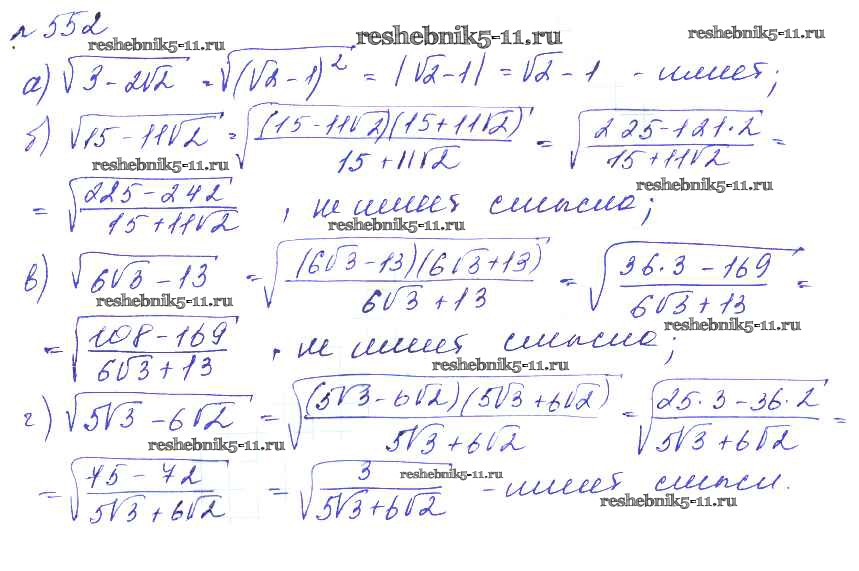 № 552
reshebnik5-11.ru reshebnik5-11.ru reshebnik5-11.ru
а) √(3 - 2√2) = √((√2 - 1)²) = |√2 - 1| = √2 - 1 - имеет;
б) √(15 - 11√2) = √((15 - 11√2)(15 + 11√2) / (15 + 11√2)) = √((225 - 121·2) / (15 + 11√2)) =
reshebnik5-11.ru reshebnik5-11.ru
= √((225 - 242) / (15 + 11√2)), не имеет смысла;
reshebnik5-11.ru
в) √(6√3 - 13) = √((6√3 - 13)(6√3 + 13) / (6√3 + 13)) = √((36·3 - 169) / (6√3 + 13)) =
reshebnik5-11.ru reshebnik5-11.ru
= √((108 - 169) / (6√3 + 13)), не имеет смысла;
reshebnik5-11.ru
г) √(5√3 - 6√2) = √((5√3 - 6√2)(5√3 + 6√2) / (5√3 + 6√2)) = √((25·3 - 36·2) / (5√3 + 6√2)) =
reshebnik5-11.ru
= √((75 - 72) / (5√3 + 6√2)) = √(3 / (5√3 + 6√2)) - имеет смысл.
reshebnik5-11.ru reshebnik5-11.ru